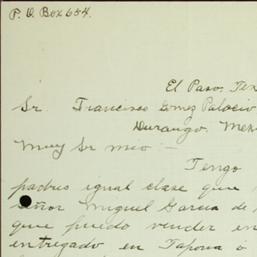 P. O. Box 654.
El Paso, Tex
Sr. Francisco Gomez Palacio
Durango, Mex
Muy Sr mio:-
Tengo
padres igual clase que
Señor Miguel Garcia de
que puedo vender en
entregado en Tapona ó